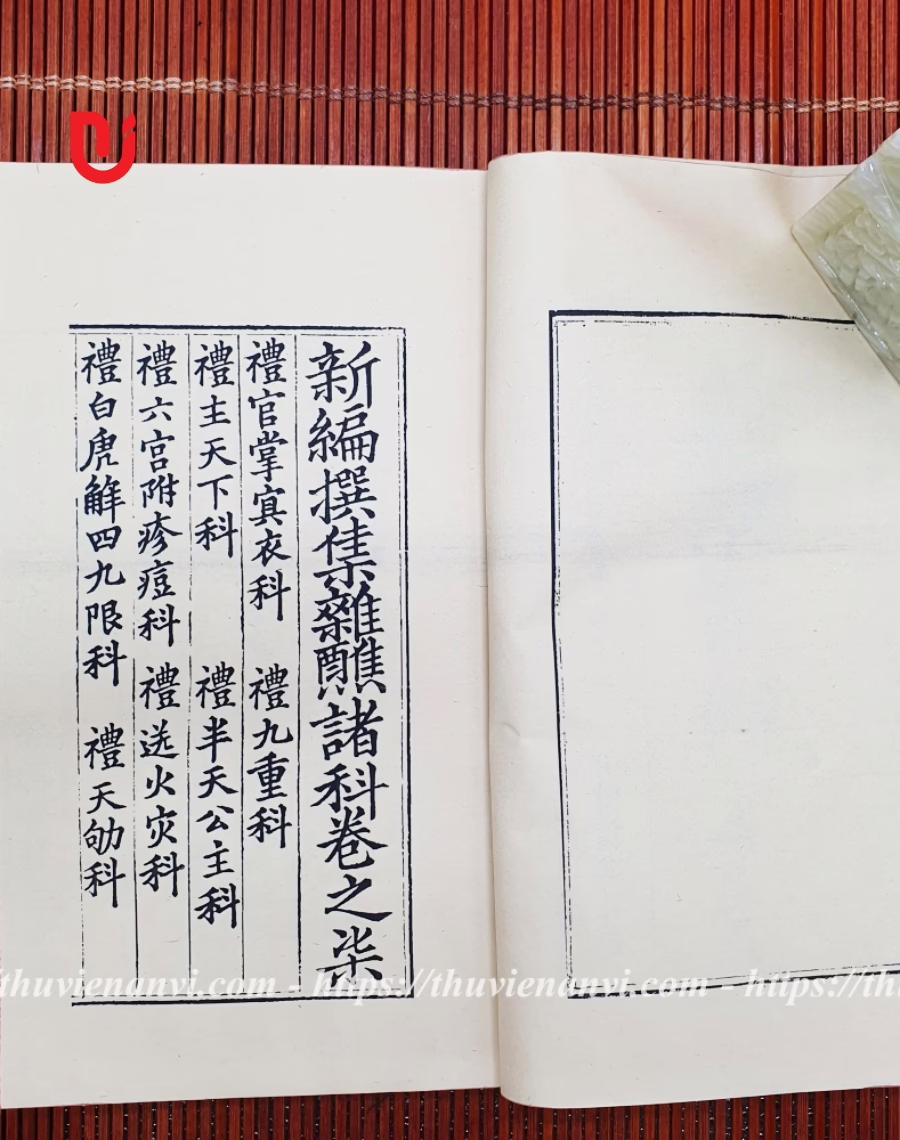 新編撰集雜醮諸科卷之柒
禮官掌寘衣科 禮九重科
禮主天下科 禮半天公主科
禮六宮附疹痘科 禮送火灾科
禮白虎解四九限科 禮天劬科
://thuvienanvi.com - https://thuvienanvi.com - https://th